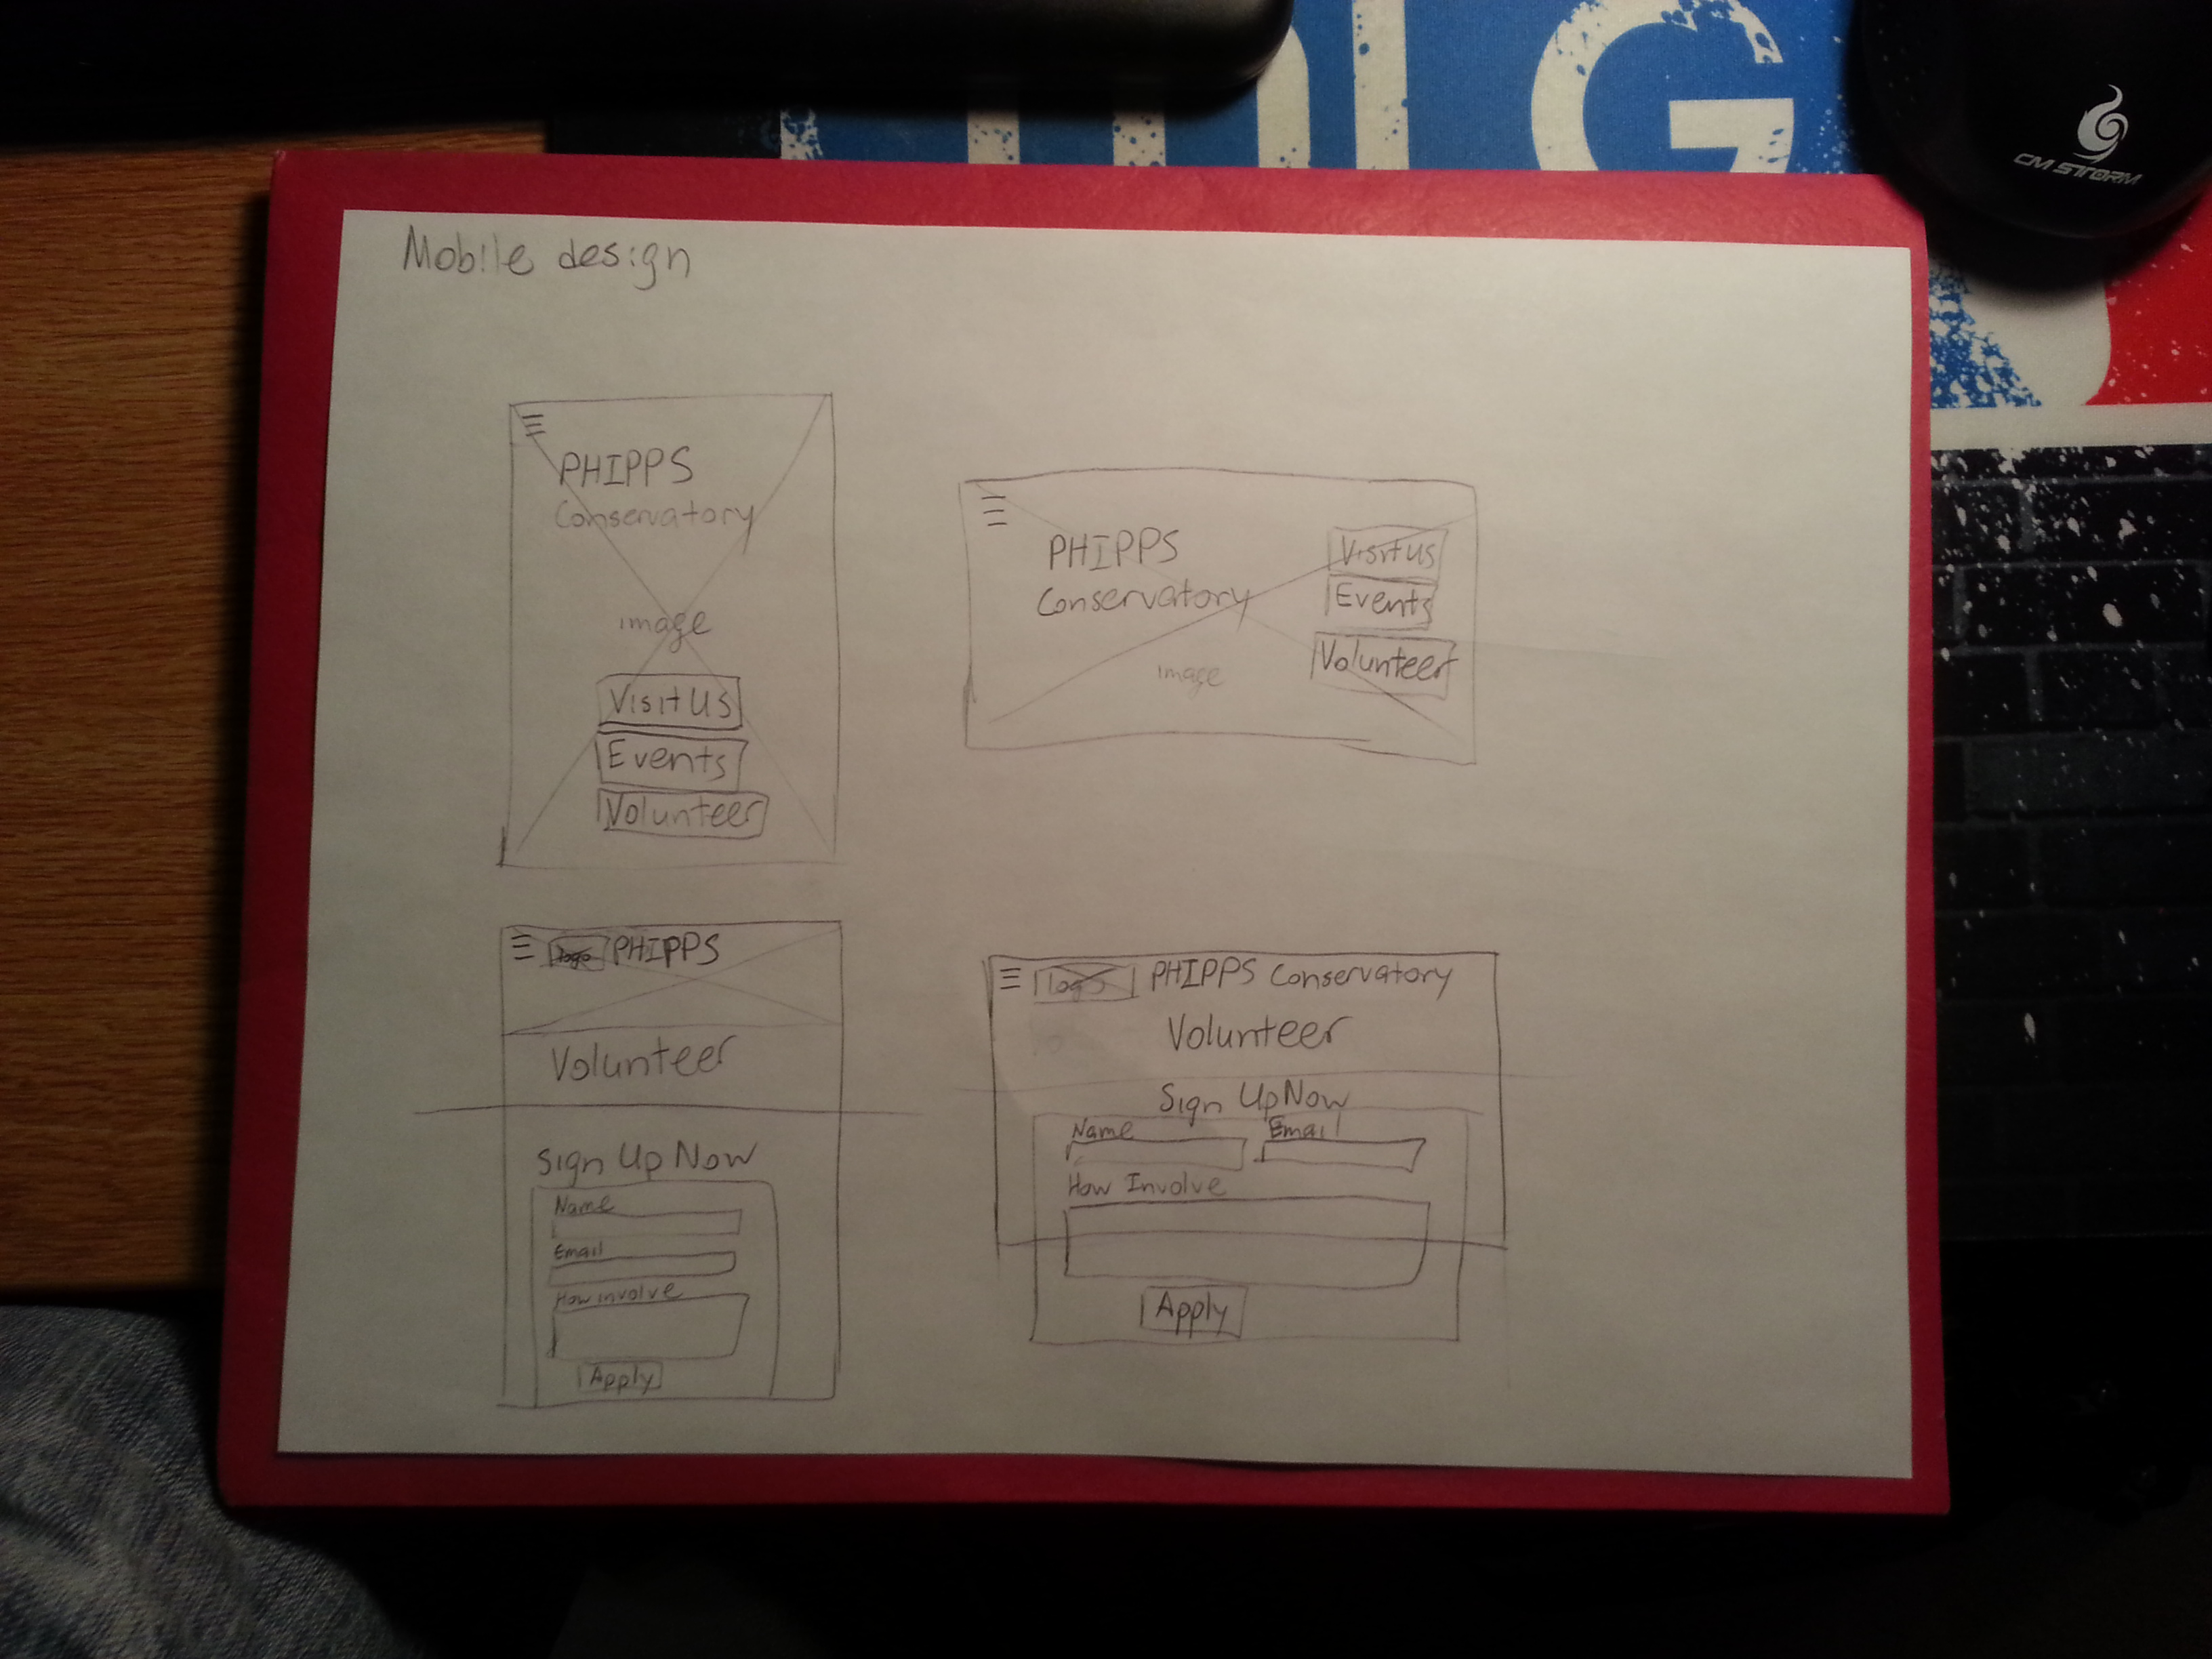 MLG
CM STORM
Mobile design
PHIPPS
Conservatory
image
Visit Us
Events
Volunteer
PHIPPS
Conservatory
image
Visit us
Events
Volunteer
logo PHIPPS
Volunteer
Sign Up Now
Name
Email
How involve
Apply
logo PHIPPS Conservatory
Volunteer
Sign Up Now
Name Email
How Involve
Apply